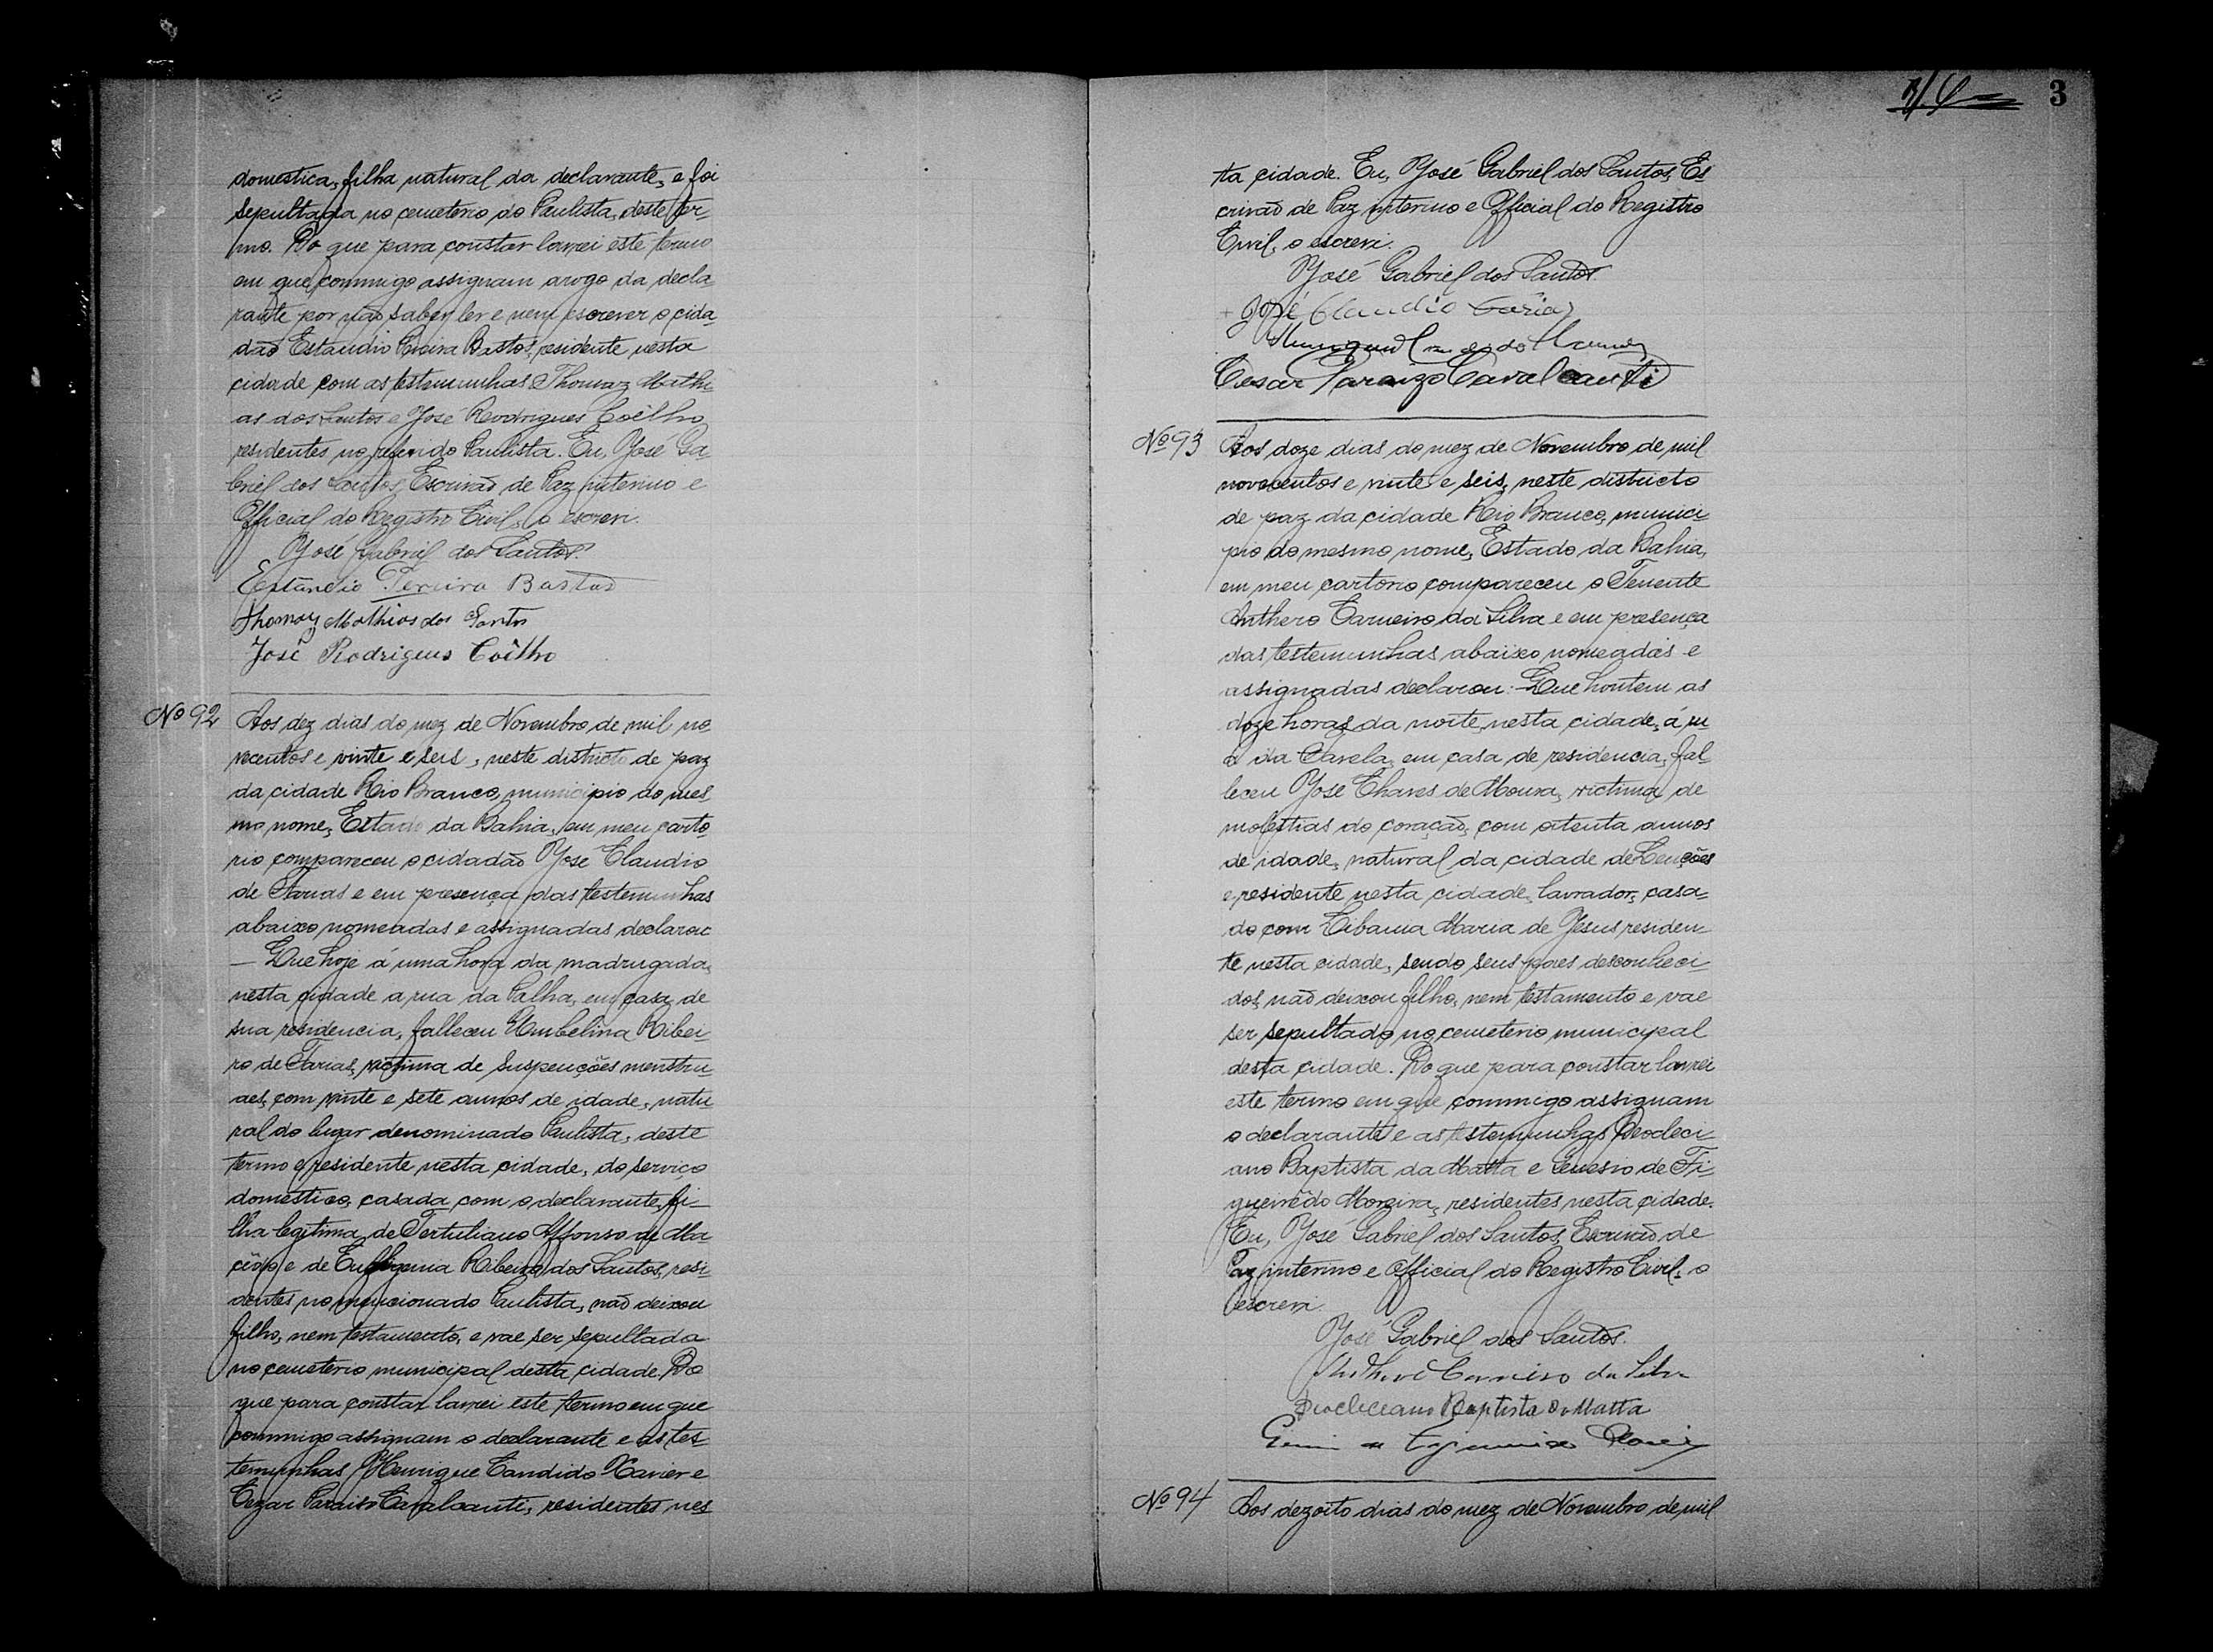 domestica, filha natural da declarante, e foi
sepultada no cemeterio do Paulista, deste ter-
mo. Do que para constar lavrei este termo
em que commigo assignam arogo da decla-
rante por não saber ler e nem escrever o cida-
dão Estandio Pereira Bastos, residente nesta
cidade com as testemunhas Thomaz Mathi-
as dos Santos e José Rodrigues Coêlho
residentes no referido Paulista. Eu, José Ga-
briel dos Santos, Escrivão de Paz interino e
Official do Registro Civil, o escrevi.
José Gabriel dos Santos.
Estandio Pereira Bastos
Thomaz Mathias dos Santos
José Rodrigues Coêlho
Nº 92
Aos dez dias do mez de Novembro de mil no-
vecentos e vinte e seis, neste districto de paz
da cidade Rio Branco, municipio do mes-
mo nome, Estado da Bahia, em meu carto-
rio compareceu o cidadão José Claudio
de Farias e em presença das testemunhas
abaixo nomeadas e assignadas declarou
— Que hoje á uma hora da madrugada,
nesta cidade á rua da Palha, em casa de
sua residencia, falleceu Umbelina Ribei-
ro de Farias, victima de suspenções menstru-
aes, com vinte e sete annos de idade, natu-
ral do lugar denominado Paulista, deste
termo e residente nesta cidade, do serviço
domestico, casada com o declarante, fi-
lha legitima de Tertuliano Affonso de Ma-
cêdo e de Ribeiro dos Santos, resi-
dentes no mencionado Paulista, não deixou
filho, nem testamento, e vae ser sepultada
no cemeterio municipal desta cidade. Do
que para constar lavrei este termo em que
commigo assignam o declarante e as tes-
temunhas Henrique Candido Xavier e
Cezar Paraiso Cavalcante, residentes nes-
3
ta cidade. Eu, José Gabriel dos Santos, Es-
crivão de Paz interino e Official do Registro
Civil, o escrevi.
José Gabriel dos Santos.
José Claudio Farias
Cesar Paraizo Cavalcanti
Nº 93
Aos doze dias do mez de Novembro de mil
novecentos e vinte e seis, neste districto
de paz da cidade Rio Branco, munici-
pio do mesmo nome, Estado da Bahia,
em meu cartorio compareceu o Tenente
Anthero Carneiro da Silva e em presença
das testemunhas abaixo nomeadas e
assignadas declarou: – Que hontem as
doze horas da noite, nesta cidade, á ru-
a da em casa de residencia, fal-
leceu José Chaves de Moura, victima de
molestias do coração, com oitenta annos
de idade, natural da cidade de Lençóes
e residente nesta cidade, lavrador, casa-
do com Libania Maria de Jesus residen-
te nesta cidade, sendo seus paes desconheci-
dos, não deixou filho, nem testamento e vae
ser sepultado no cemeterio municipal
desta cidade. Do que para constar lavrei
este termo em que commigo assignam
o declarante e as testemunhas Deocleci-
ano Baptista da Matta e Genesio de Fi-
gueirêdo Moreira, residentes nesta cidade.
Eu, José Gabriel dos Santos, Escrivão de
Paz interino e Official do Registro Civil, o
escrevi.
José Gabriel dos Santos.
Anthero Carneiro da Silva
Deocleciano Baptista da Matta
Nº 94
Aos dezoito dias do mez de Novembro de mil